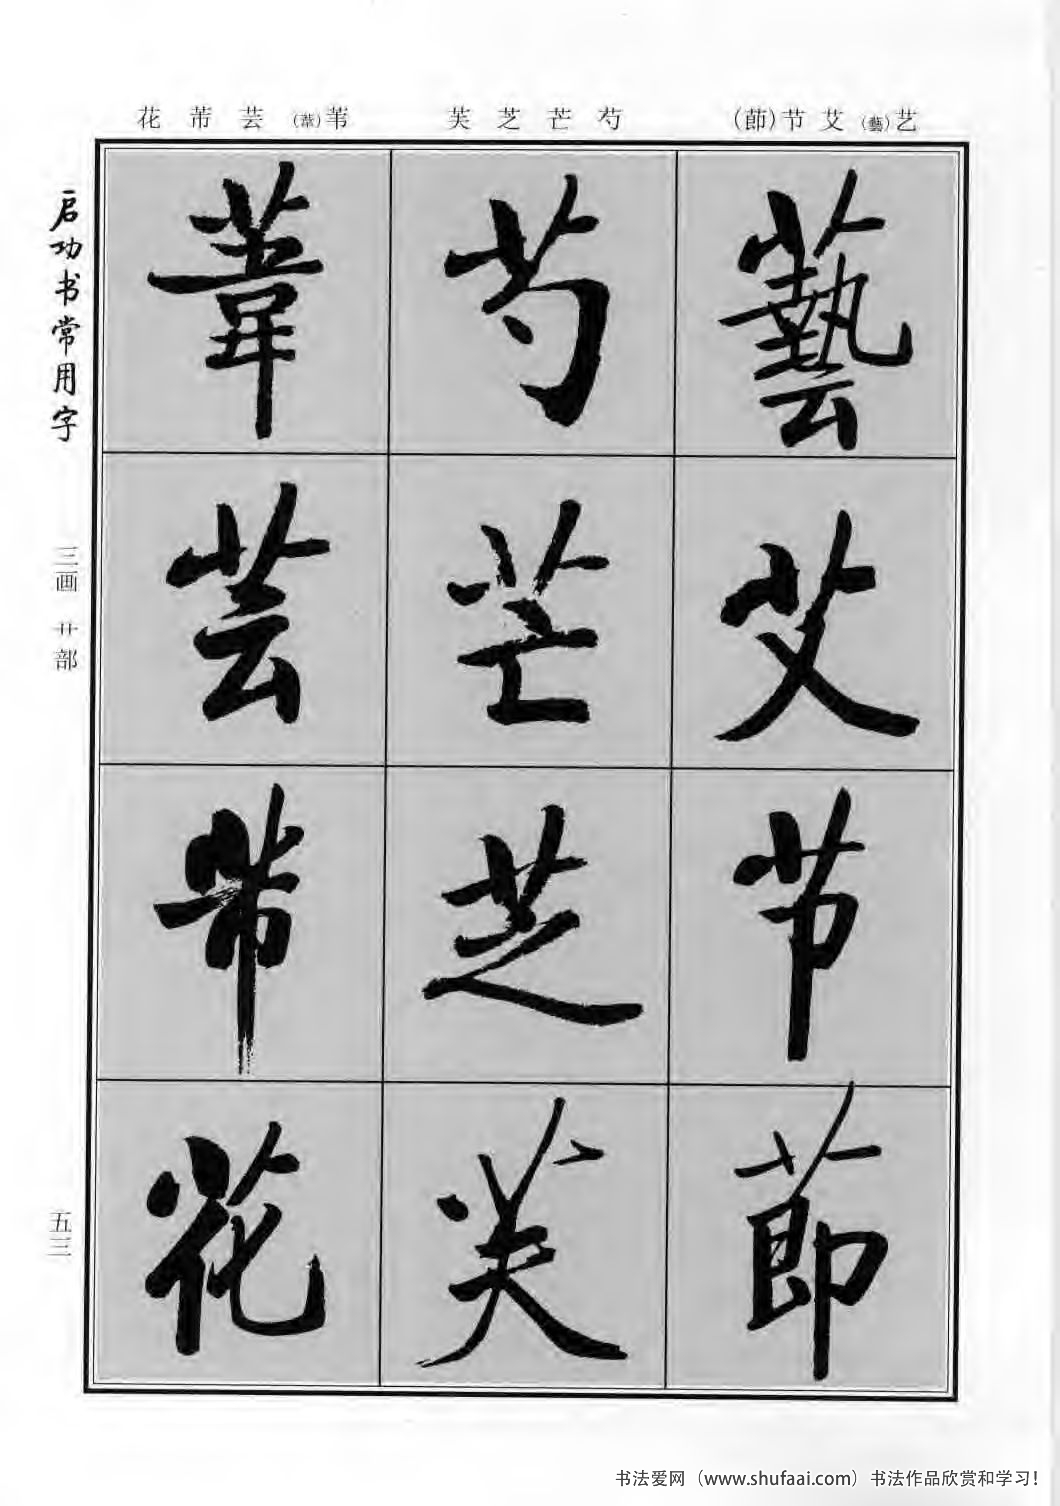 艺(藝) 艾 节(莭)
芍 芒 芝 芙
苇(葦) 芸 芾 花
藝
艾
节
莭
芍
芒
芝
芙
葦
芸
芾
花
启功书常用字
三画 艹部
五三
书法爱网（www.shufaai.com）书法作品欣赏和学习！